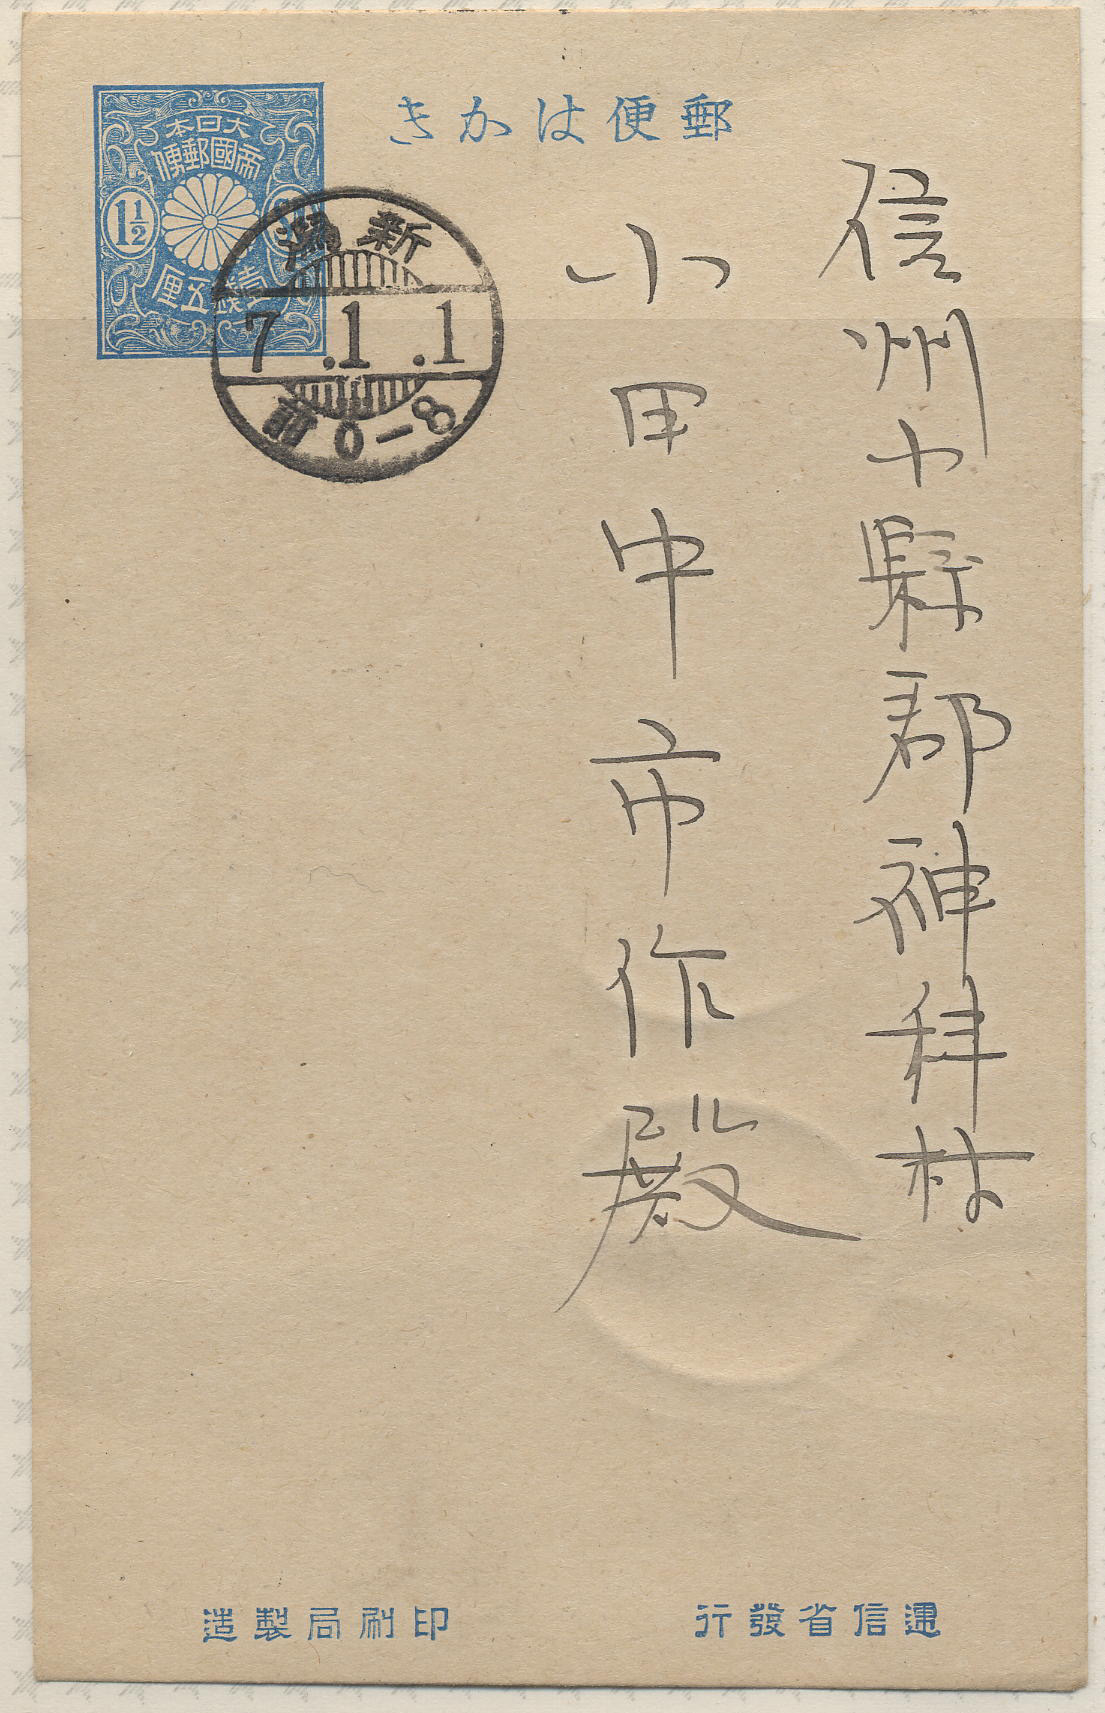 郵便はかき
大日本
帝國郵便
1½ Sn
壹錢五厘
新潟
7.1.1
前0-8
信州小縣郡神科村
小田中市作殿
遞信省發行
印刷局製造